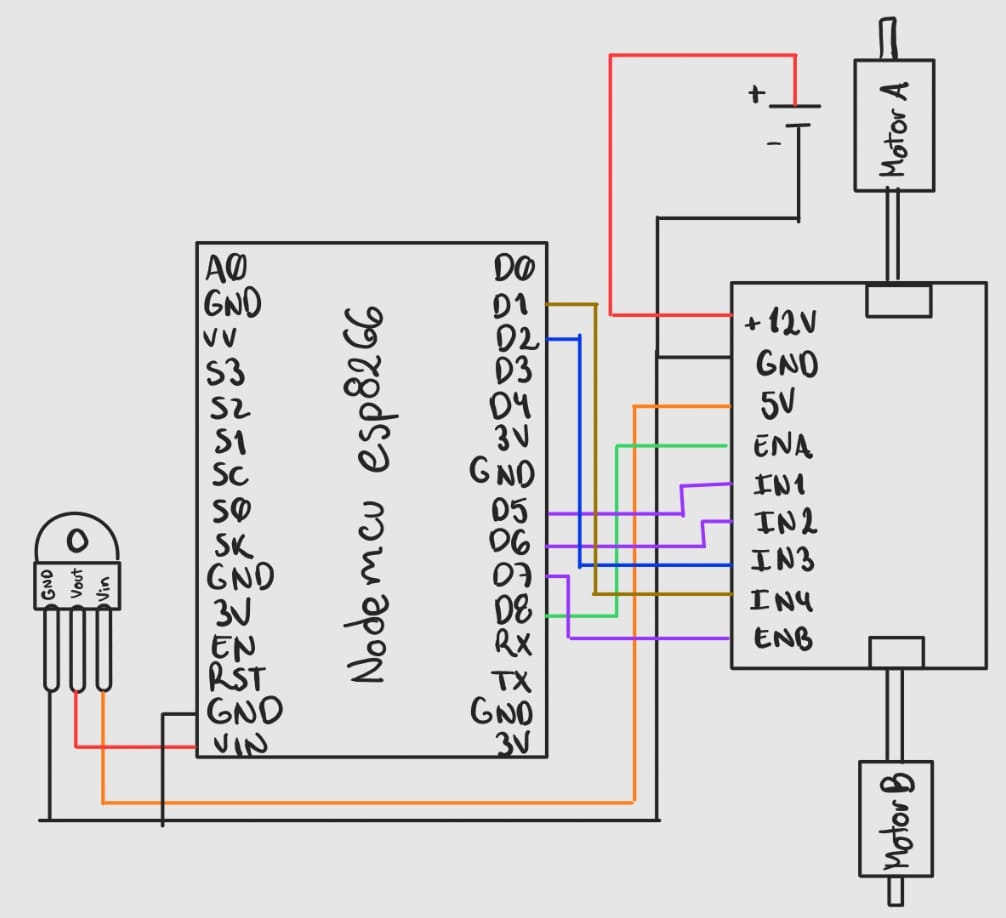 +
-
Motor A
A0
GND
VV
S3
S2
S1
SC
S0
SK
GND
3V
EN
RST
GND
VIN
Nodemcu esp8266
D0
D1
D2
D3
D4
3V
GND
D5
D6
D7
D8
RX
TX
GND
3V
+12V
GND
5V
ENA
IN1
IN2
IN3
IN4
ENB
GND
Vout
Vin
Motor B